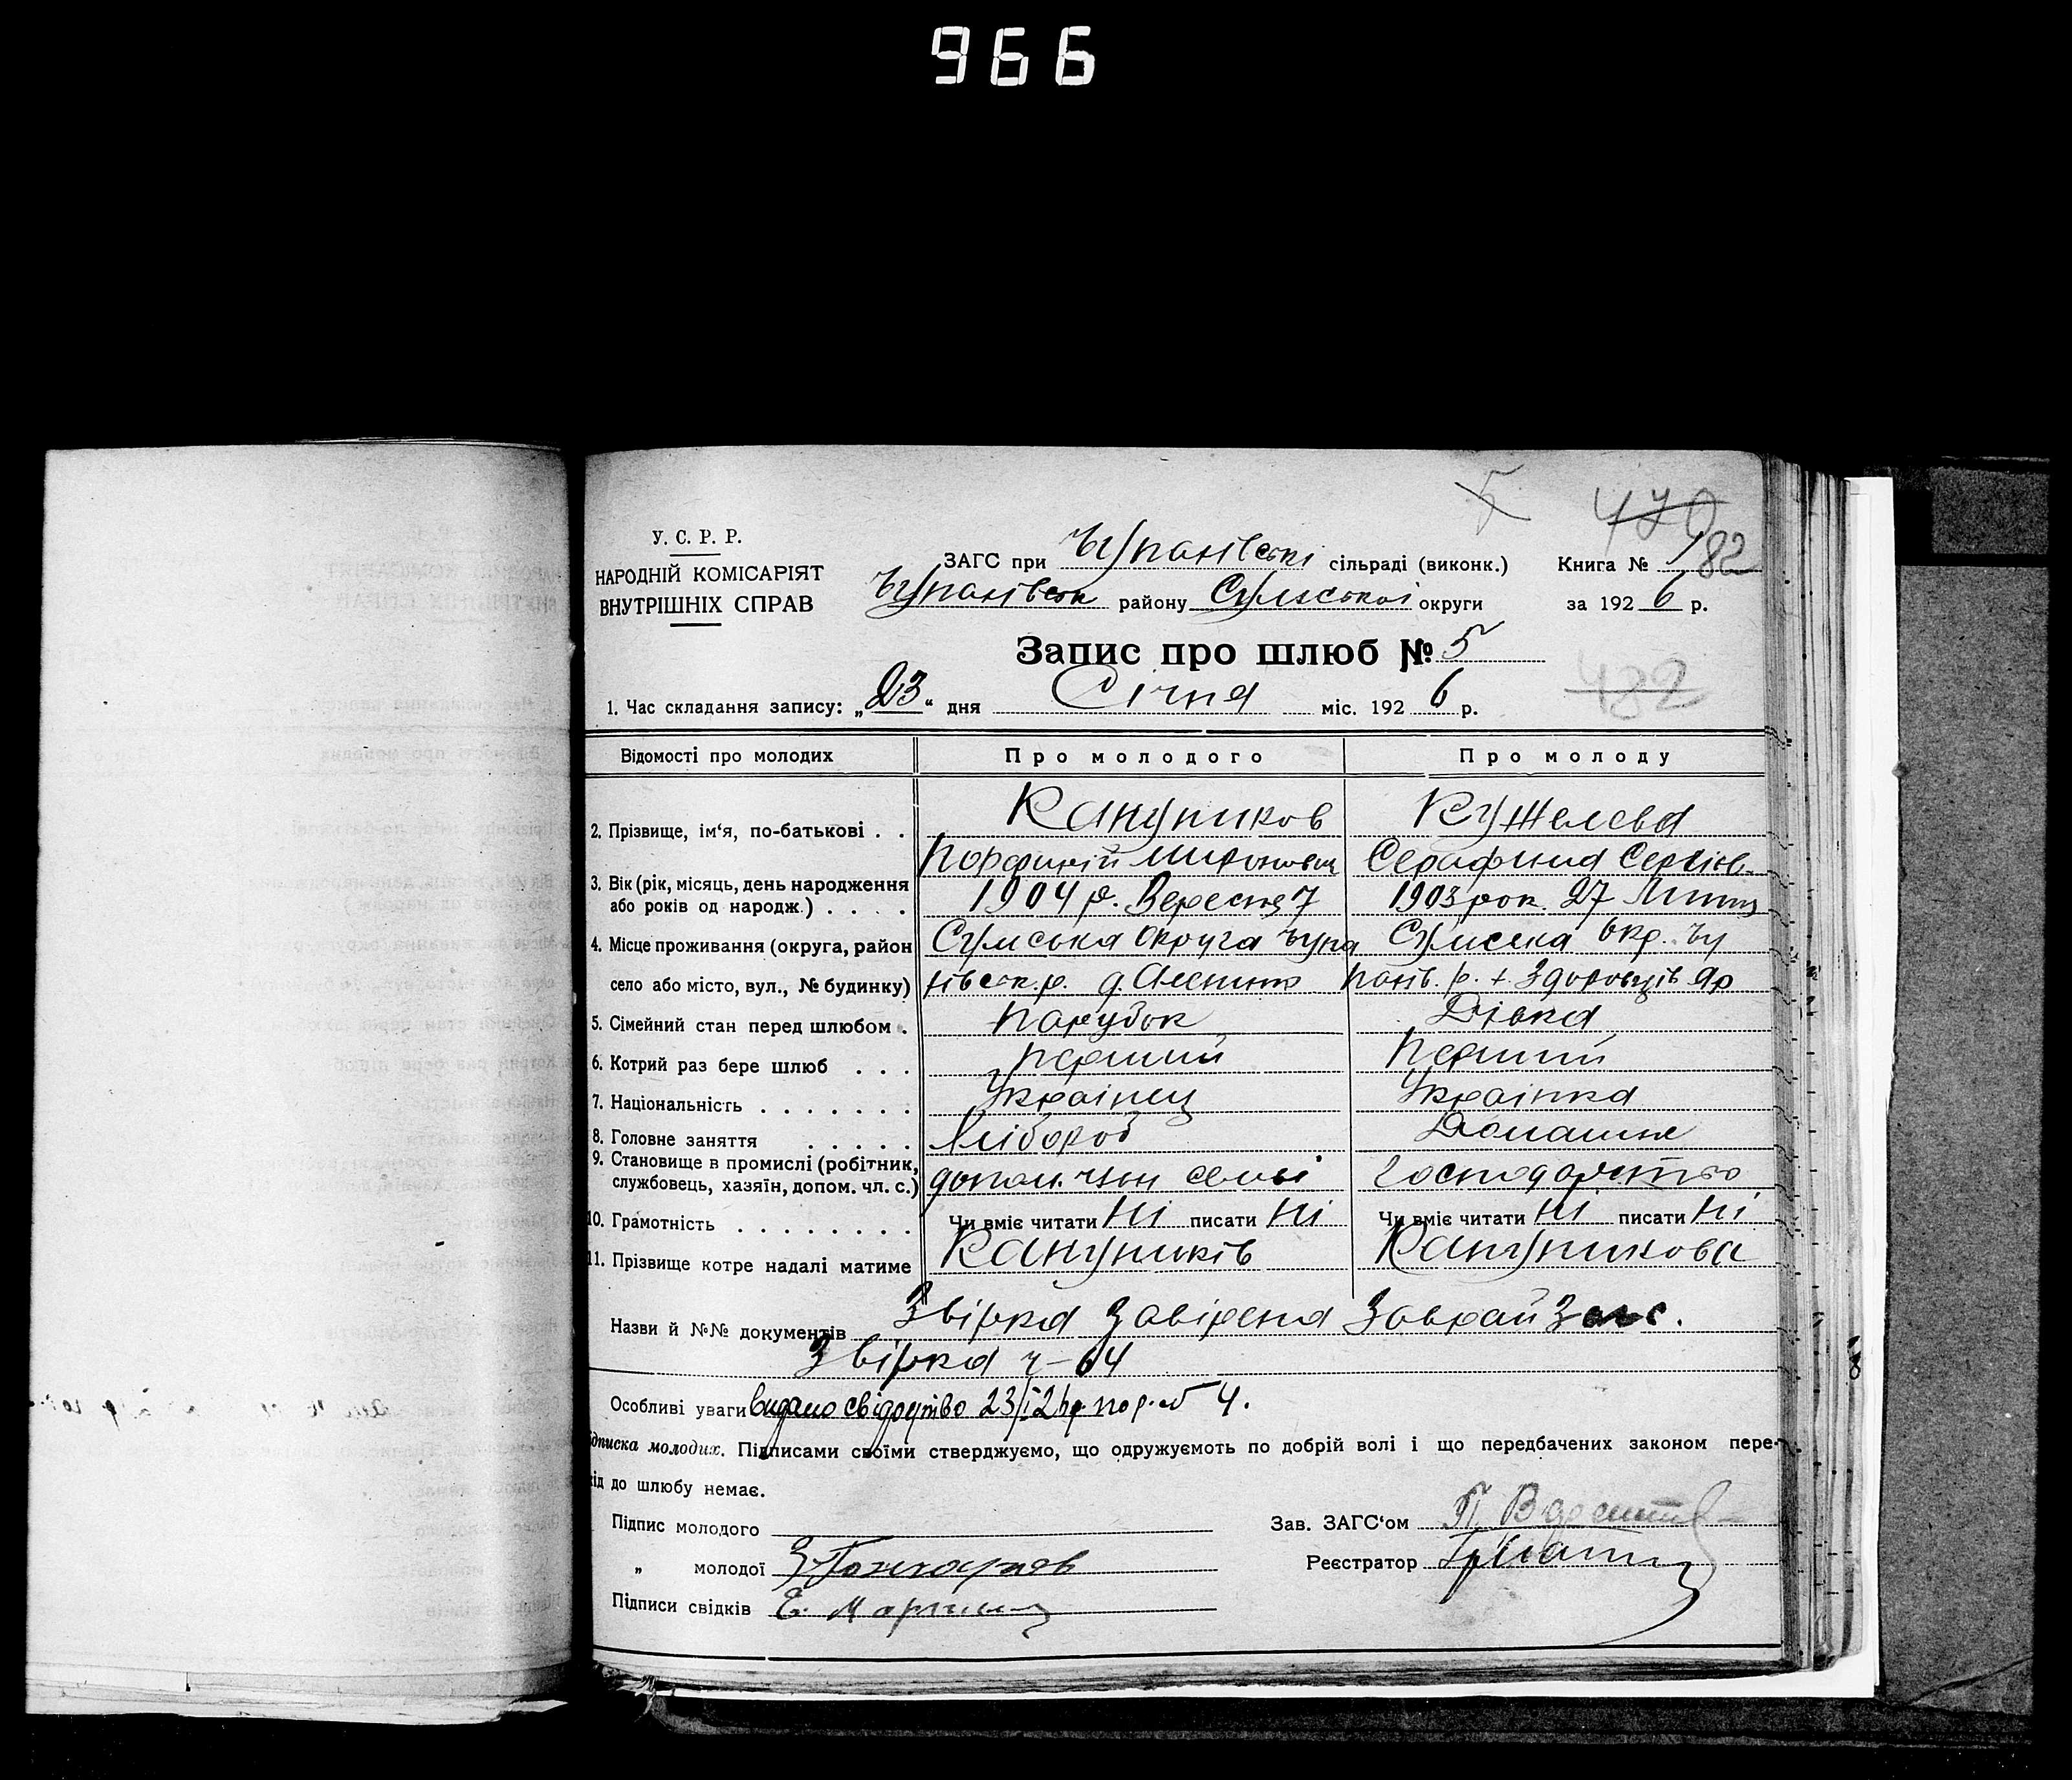 966
5
470
182
У. С. Р. Р.
НАРОДНІЙ КОМІСАРІЯТ
ВНУТРІШНІХ СПРАВ
ЗАГС при Чупахівські сільраді (виконк.) Книга №
Чупахівськ району Сумської округи за 1926 р.
Запис про шлюб № 5
482
1. Час складання запису: „23“ дня Січня міс. 1926 р.
Відомості про молодих Про молодого Про молоду
2. Прізвище, ім‘я, по-батькові . . Кужелева
Порфирій Миронович Серафима Сергіїв.
3. Вік (рік, місяць, день народження 1904 р. Вересня 7 1903 рок. 27 Липня
або років од народж.) . . . .
4. Місце проживання (округа, район Сумська округа Чупа Сумська Окр. Чу
село або місто, вул., № будинку) хівськ. р. пахів. р. х Здоровців яр
5. Сімейний стан перед шлюбом . Парубок Дівка
6. Котрий раз бере шлюб . . . перший перший
7. Національність . . . . . . . Українец Українка
8. Головне заняття . . . . . Хлібороб Домашнє
9. Становище в промислі (робітник, допом. член семьї господарство
службовець, хазяїн, допом. чл. с.)
10. Грамотність . . . . . . . . Чи вміє читати Ні писати Ні Чи вміє читати Ні писати Ні
11. Прізвище котре надалі матиме
Назви й №№ документів Звірка Завірена Заврай Загс.
Звірка ч-64
Особливі уваги видано свідоцтво 23/I 26 р. по р. № 4.
ідписка молодих. Підписами своїми стверджуємо, що одружуємоть по добрій волі і що передбачених законом пере-
ід до шлюбу немає.
Підпис молодого
Зав. ЗАГС‘ом
„ молодої
Реєстратор
Підписи свідків